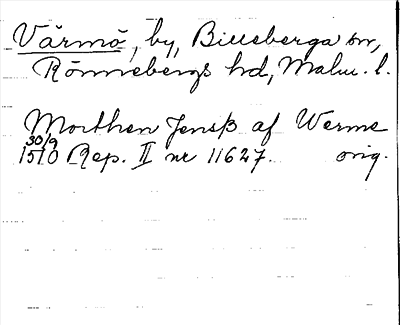 Värmö, by, Billeberga sn,
Rönnebergs hd, Malm. l.
Morthen Jenss af Werme
30/9
1510 Rep. II nr 11627. orig.